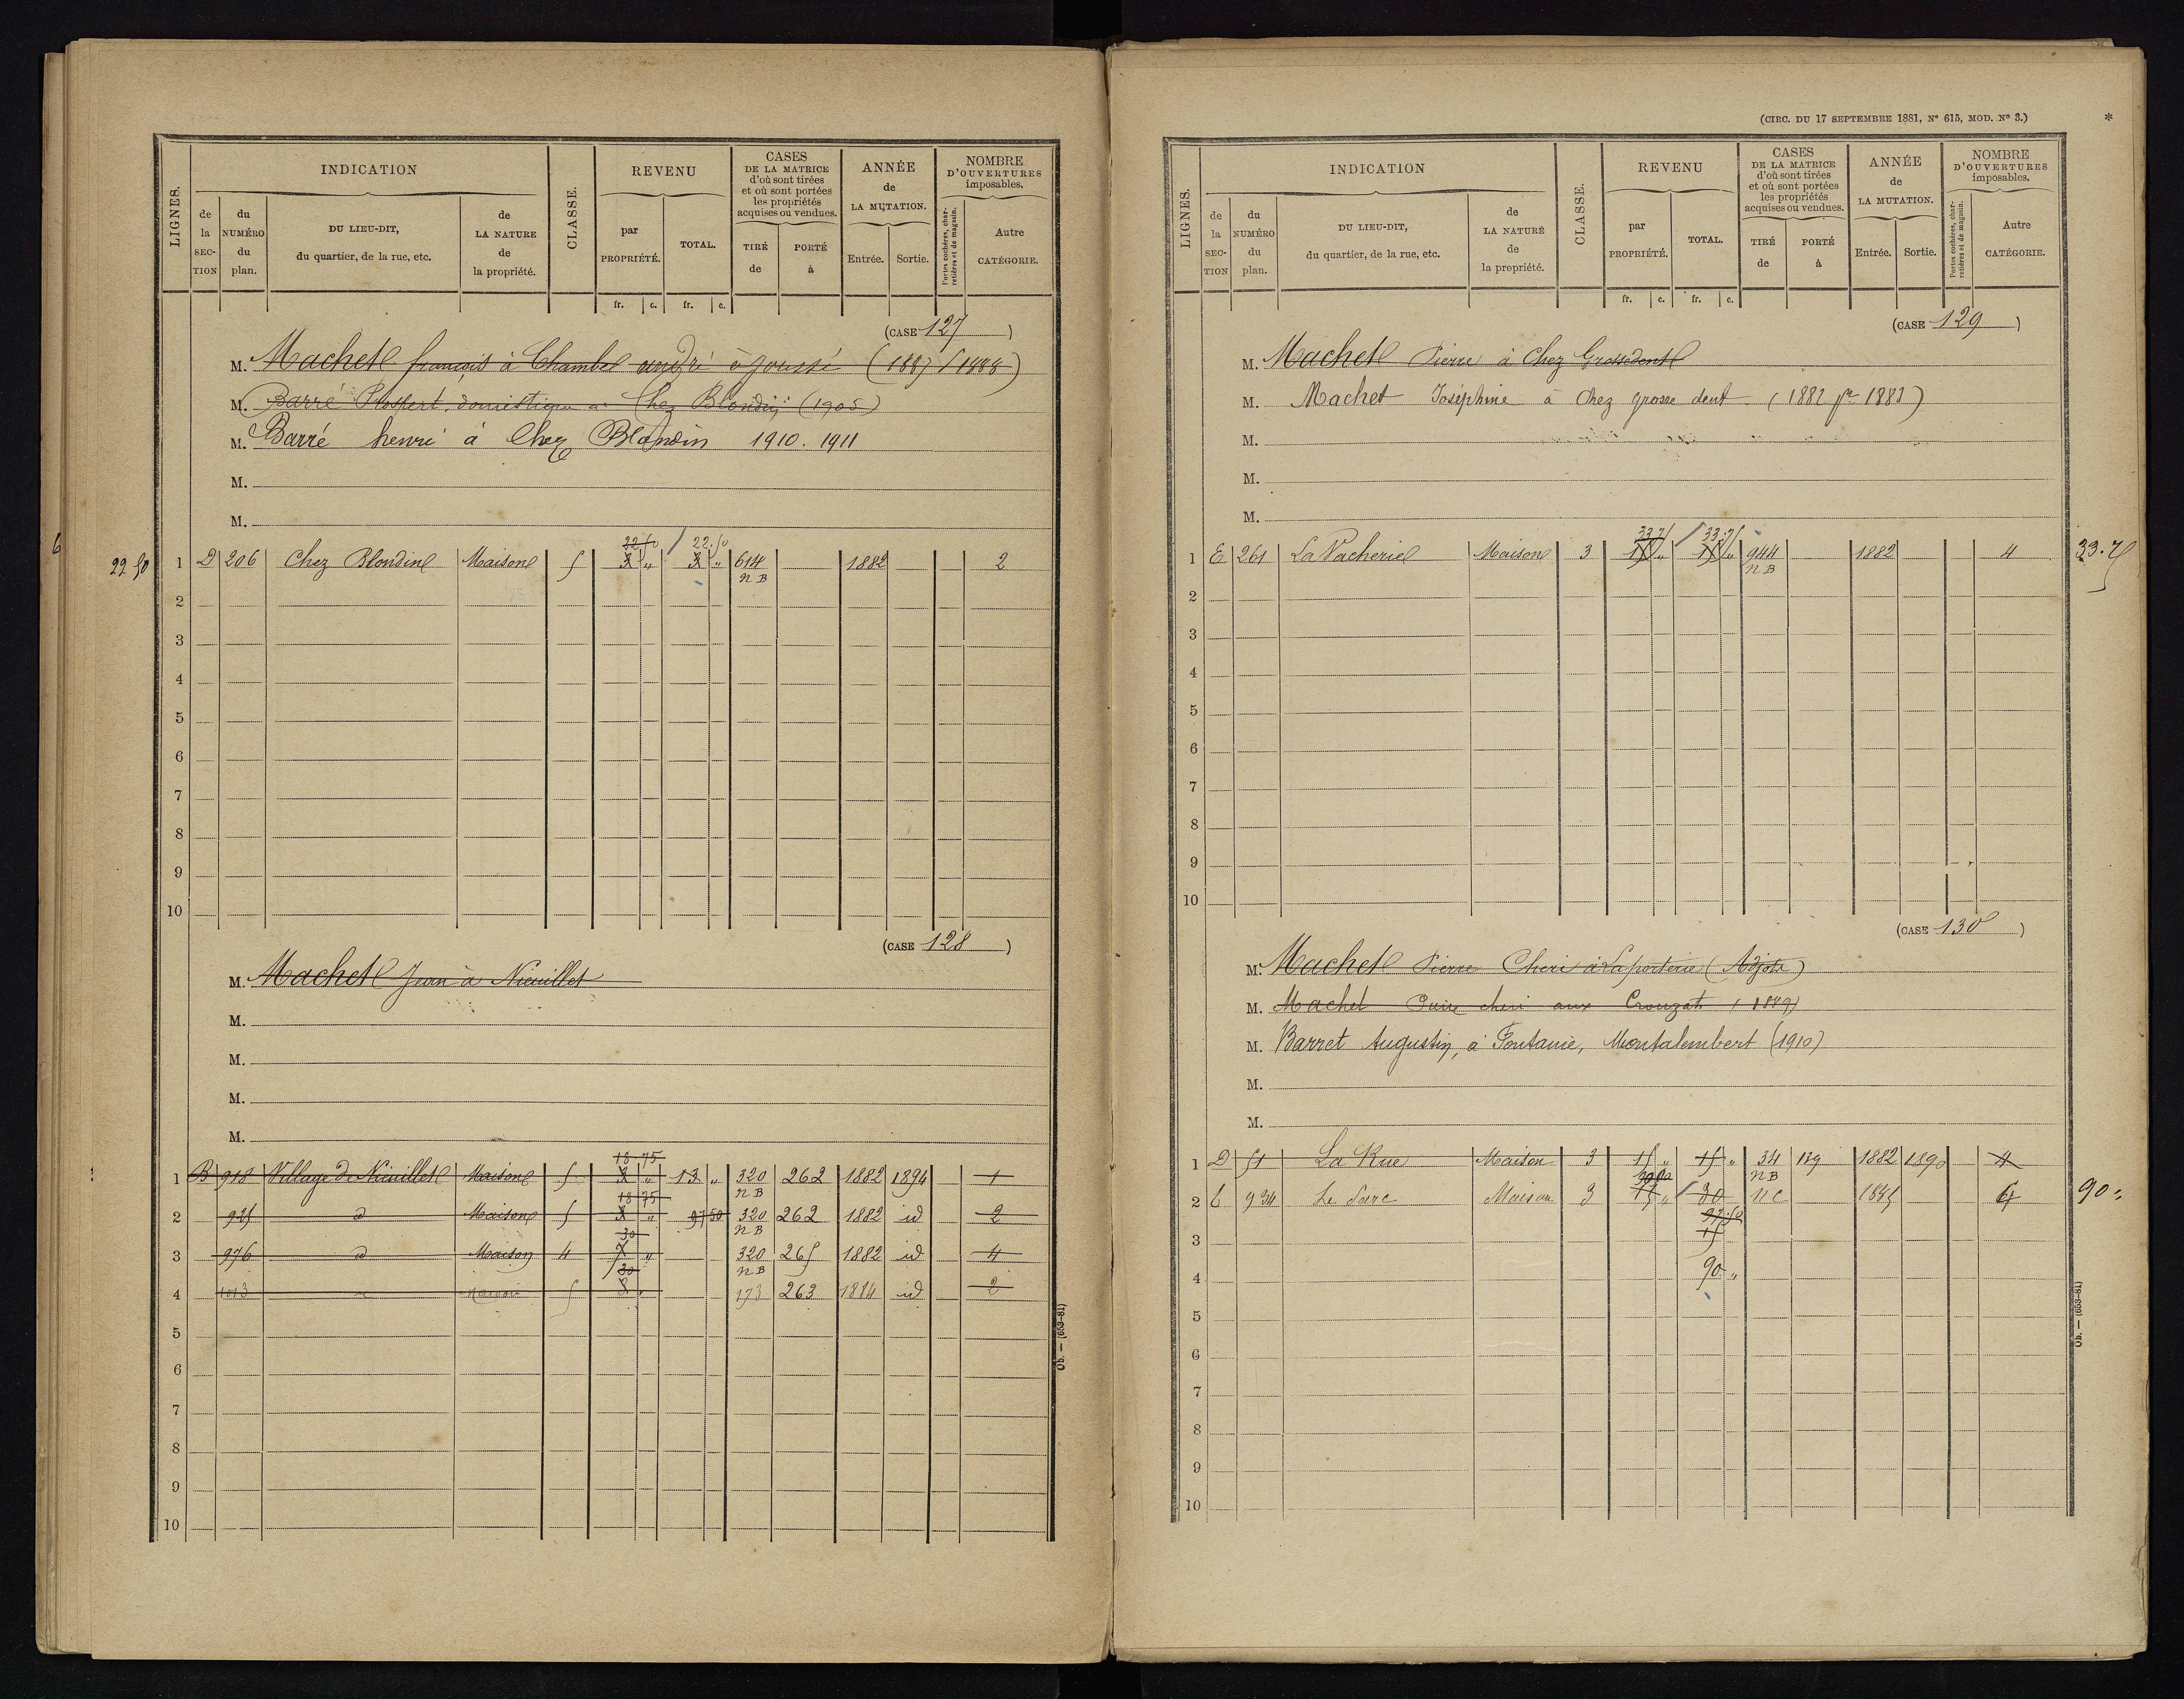 LIGNES.
INDICATION
CLASSE.
REVENU
CASES
DE LA MATRICE
d'où sont tirées
et où sont portées
les propriétés
acquises ou vendues.
ANNÉE
de
LA MUTATION.
NOMBRE
D'OUVERTURES
imposables.
de la SEC-TION
du NUMÉRO du plan.
DU LIEU-DIT,
du quartier, de la rue, etc.
de LA NATURE de la propriété.
par PROPRIÉTÉ.
TOTAL.
TIRÉ de
PORTÉ à
Entrée.
Sortie.
Portes cochères, charretières et de magasin.
Autre CATÉGORIE.
fr. c. fr. c.
(CASE 127)
M. Machet françois à Chambel andré à joussé (1887 / 1888)
M. Barré Prospert, domestique à Chez Blondin (1905)
M. Barré henri à Chez Blondin 1910. 1911
M.
M.
22 50 / 22.50
22 50 1 D 206 Chez Blondin Maison 5 3 " 3 " 614 1882 2
n B
2
3
4
5
6
7
8
9
10
(CASE 128)
M. Machet Jean à Nieuillet
M.
M.
M.
M.
18 75
1 B 918 Village de Nieuillet Maison 5 3 " 13 " 320 262 1882 1894 1
18 75 n B
2 925 d Maison 5 3 " 97 50 320 262 1882 id 2
30 n B
3 976 d Maison 4 7 " 320 265 1882 id 4
30 n B
4 1013 d Maison 5 3 " 173 263 1884 id 2
5
6
7
8
9
10
Ob. — (653-81)
(CIRC. DU 17 SEPTEMBRE 1881, N° 615, MOD. N° 3.) *
LIGNES.
INDICATION
CLASSE.
REVENU
CASES
DE LA MATRICE
d'où sont tirées
et où sont portées
les propriétés
acquises ou vendues.
ANNÉE
de
LA MUTATION.
NOMBRE
D'OUVERTURES
imposables.
de la SEC-TION
du NUMÉRO du plan.
DU LIEU-DIT,
du quartier, de la rue, etc.
de LA NATURE de la propriété.
par PROPRIÉTÉ.
TOTAL.
TIRÉ de
PORTÉ à
Entrée.
Sortie.
Portes cochères, charretières et de magasin.
Autre CATÉGORIE.
fr. c. fr. c.
(CASE 129)
M. Machet Pierre à Chez Grossedent
M. Machet Joséphine à Chez grosse dent (1882 pr 1883)
M.
M.
M.
33 75 / 33.75
1 E 261 La Vacherie Maison 3 15 " 15 " 944 1882 4 33.75
n B
2
3
4
5
6
7
8
9
10
(CASE 130)
M. Machet Pierre Cheri à Laporterie (Adjote)
M. Machet Pierre cheri aux Crouzat (1889)
M. Barret Augustin, à Fontanie, Montalembert (1910)
M.
M.
1 D 51 La Rue Maison 3 15 " 15 " 34 129 1882 1890 4
90 00 n B
2 C 934 Le Parc Maison 3 15 " 30 n C 1885 6 90 "
37.50
3 15
4 90 "
5
6
7
8
9
10
Ob. — (653-81)